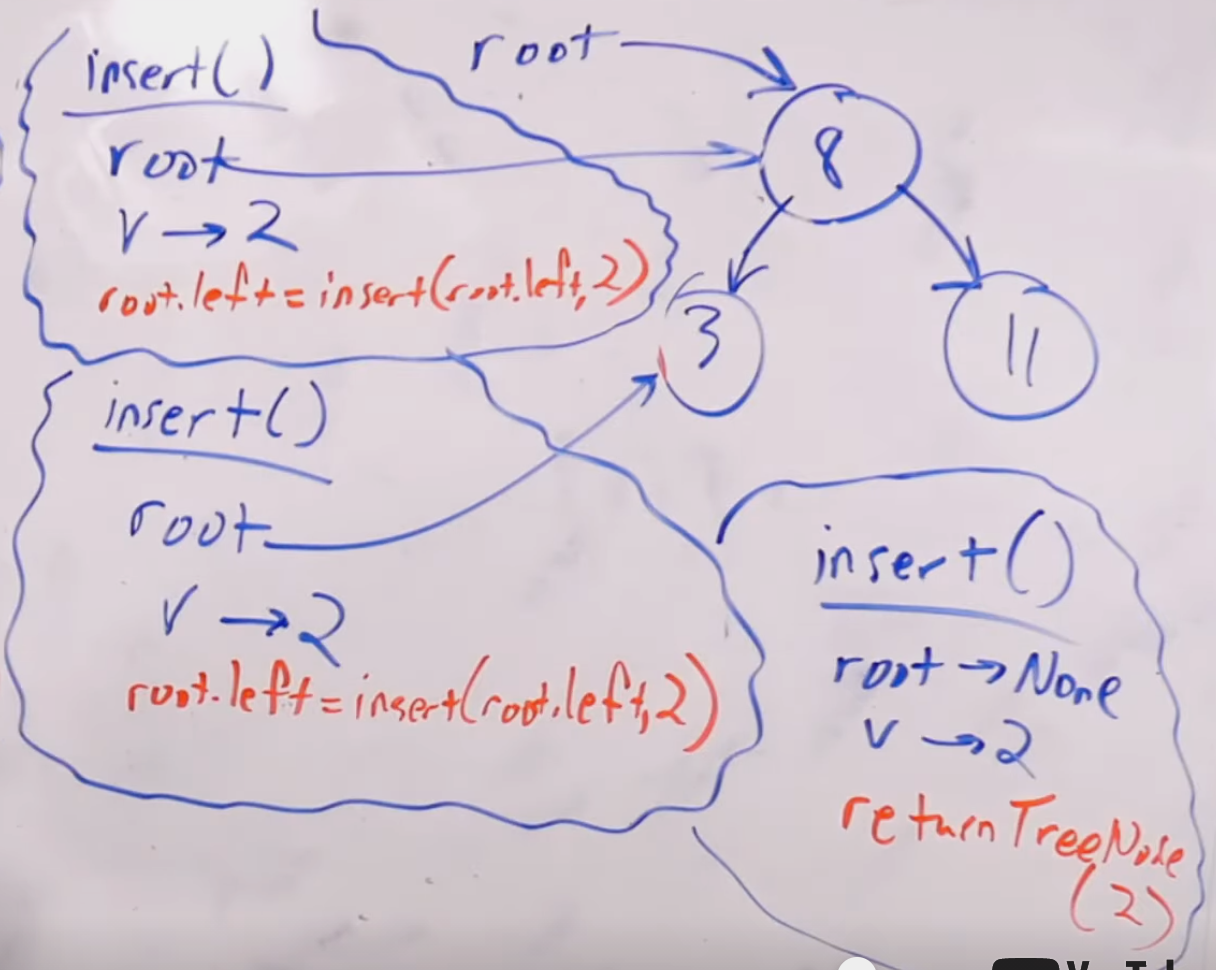 insert()
root
v → 2
root.left = insert(root.left, 2)
root
8
3
11
insert()
root
v → 2
root.left = insert(root.left, 2)
insert()
root → None
v → 2
return TreeNode
(2)